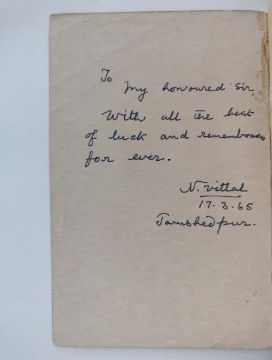 To
my honoured Sir,
With all the best
of luck and remembrances
for ever.
N. Vittal
17.3.65
Jamshedpur.